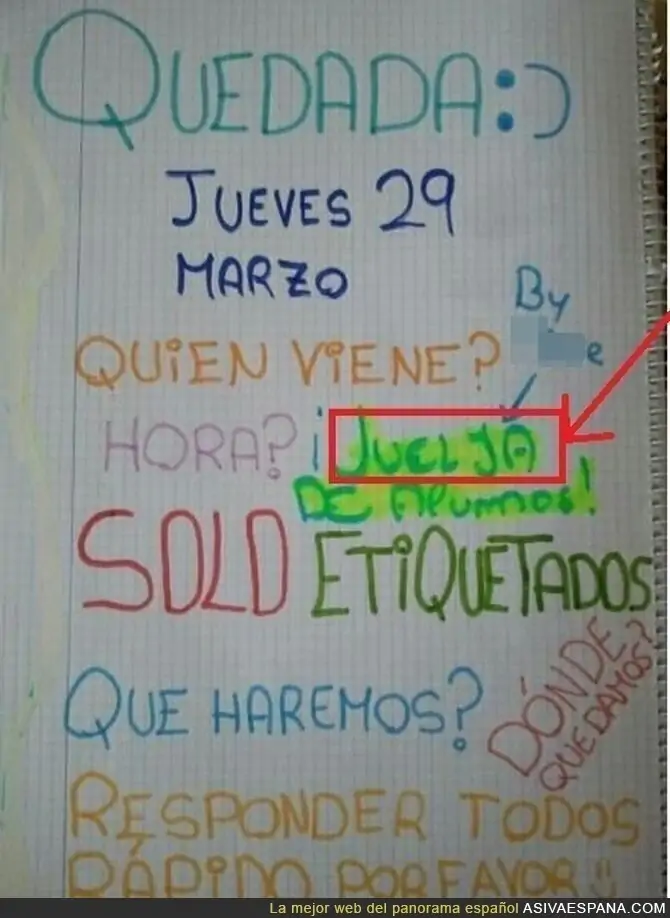 QUEDADA:)
JUEVES 29
MARZO
By
QUIEN VIENE?
HORA? ¡JUELJA
DE Alumnos!
SOLO ETIQUETADOS
QUE HAREMOS?
DÓNDE
QUEDAMOS?
RESPONDER TODOS
RÁPIDO POR FAVOR!!
La mejor web del panorama español ASIVAESPANA.COM